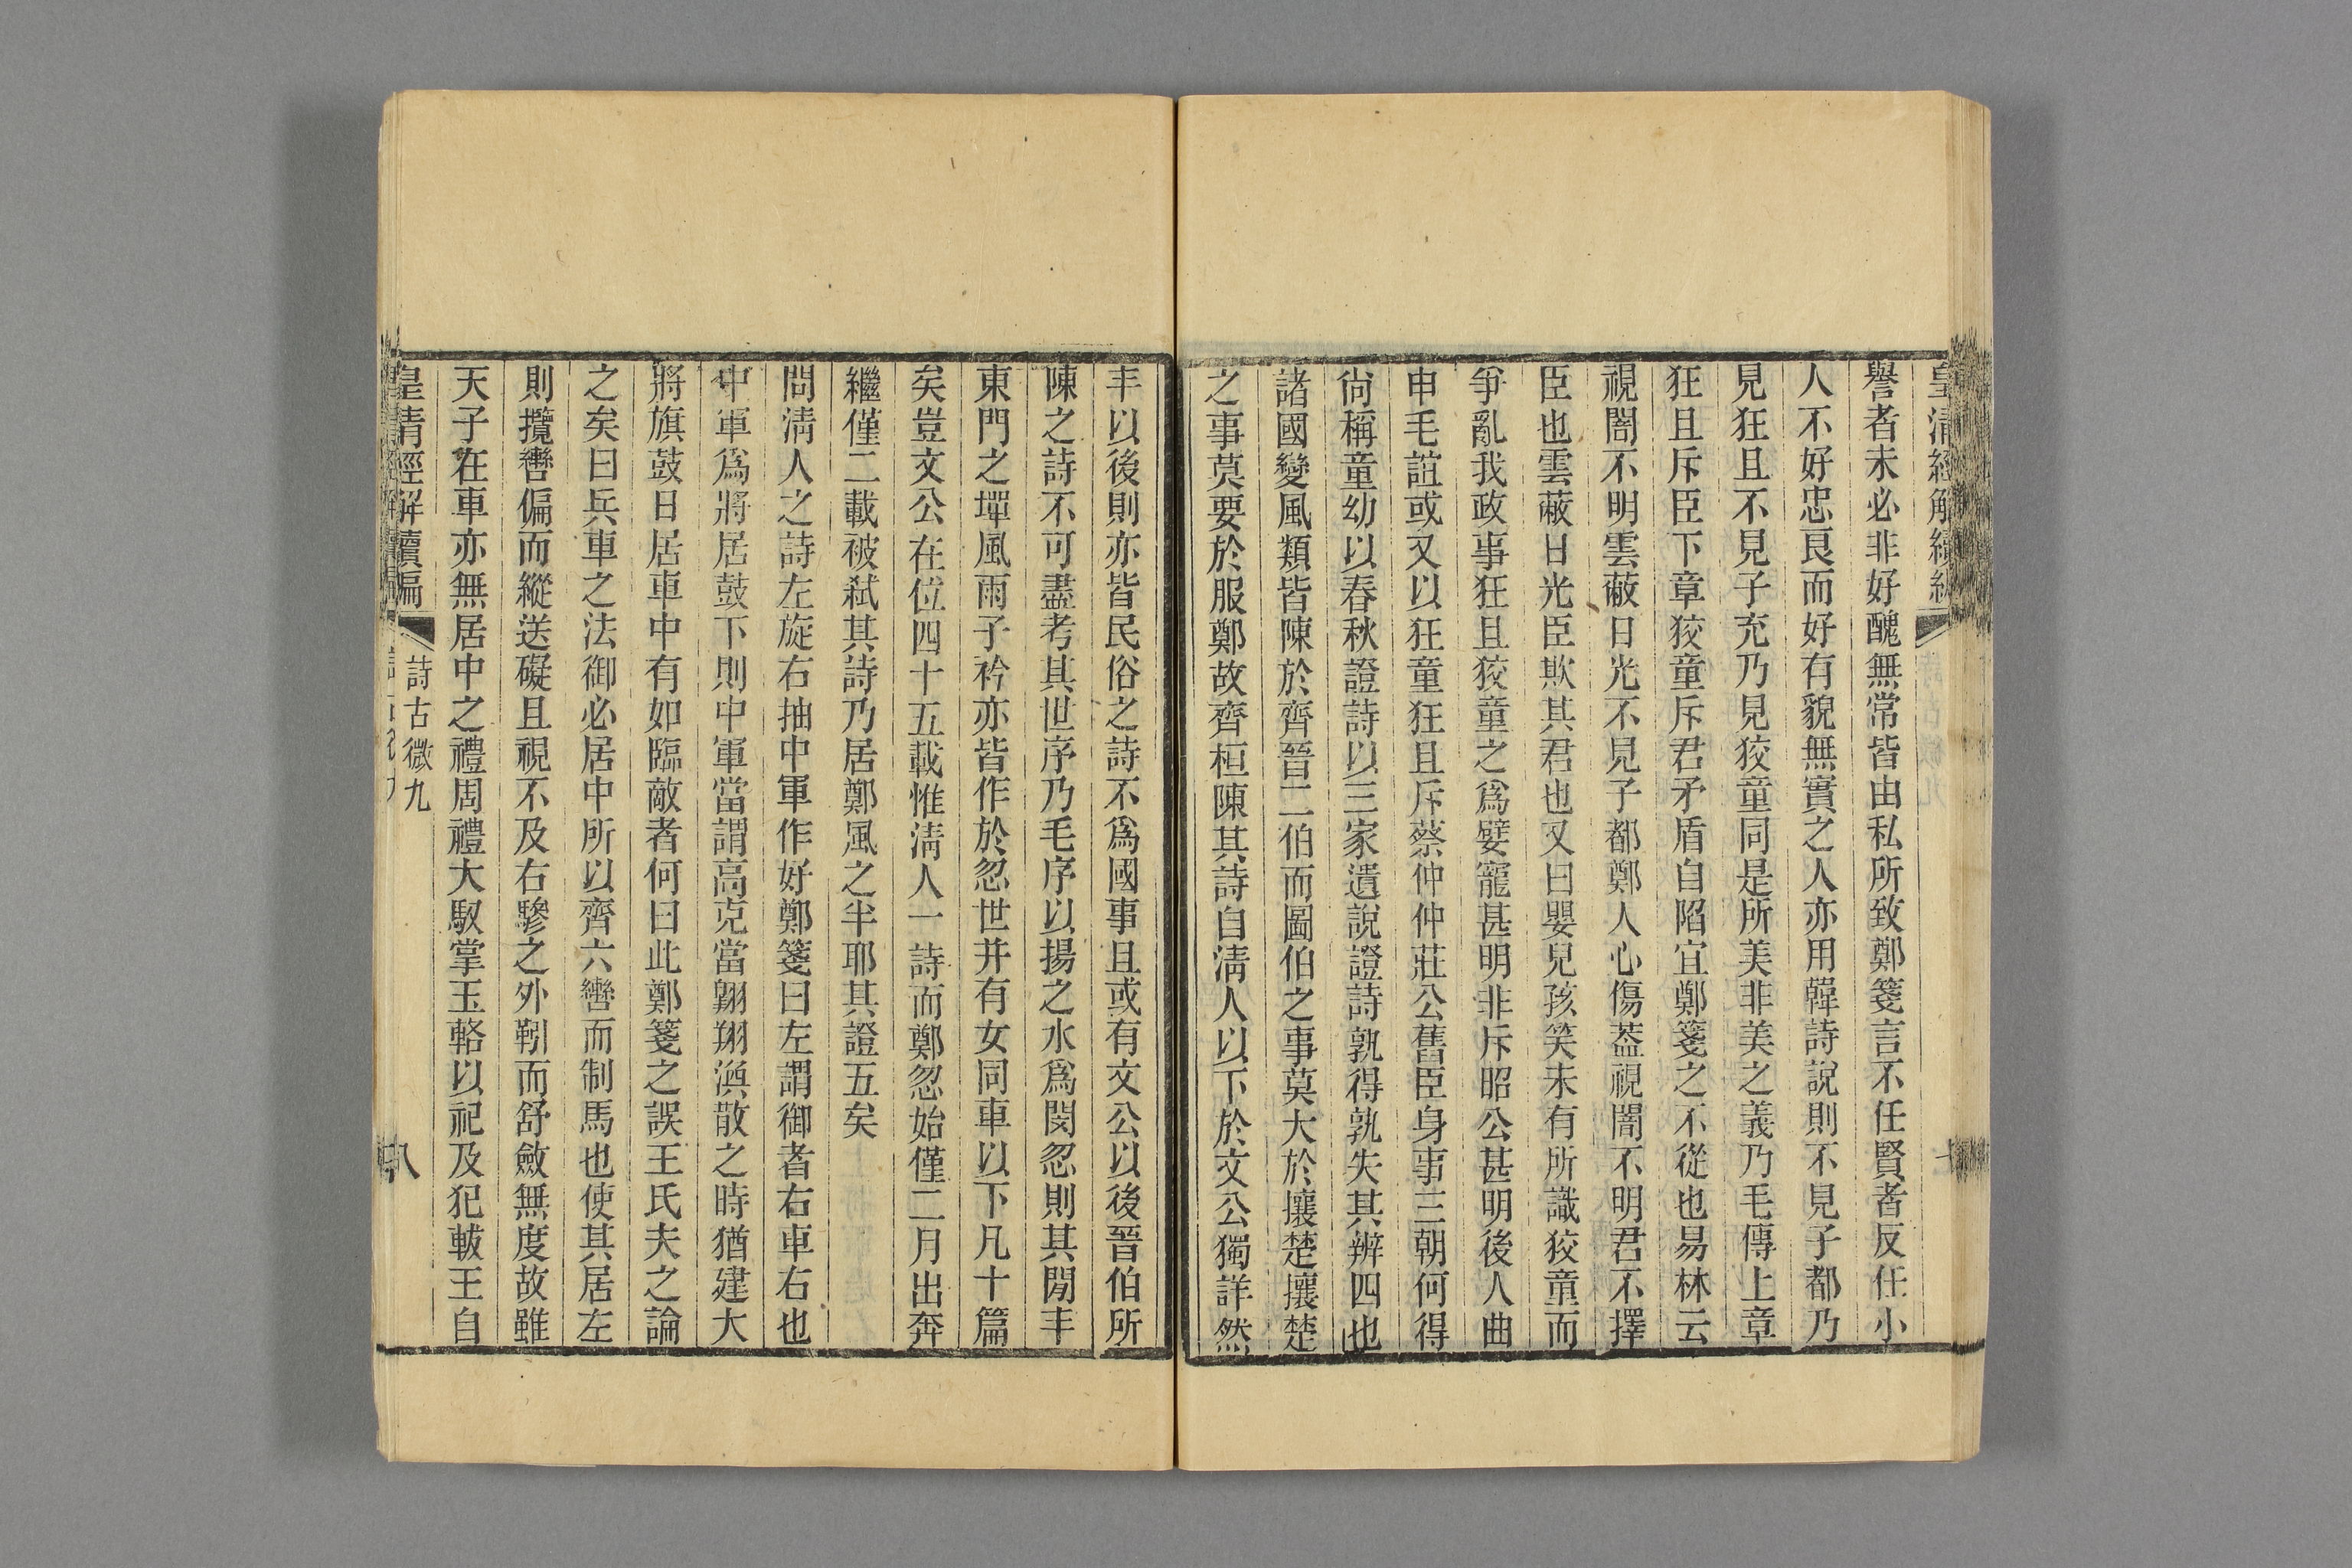 皇清經解續編
譽者未必非好醜無常皆由私所致鄭箋言不任賢者反任小
人不好忠良而好有貌無實之人亦用韓詩說則不見子都乃
見狂且不見子充乃見狡童同是所美非美之義乃毛傳上章
狂且斥臣下章狡童斥君矛盾自陷宜鄭箋之不從也易林云
視闇不明雲蔽日光不見子都鄭人心傷葢視闇不明君不擇
臣也雲蔽日光臣欺其君也又曰嬰兒孩笑未有所識狡童而
爭亂我政事狂且狡童之爲嬖寵甚明非斥昭公甚明後人曲
申毛誼或又以狂童狂且斥蔡仲仲莊公舊臣身事三朝何得
尙稱童幼以春秋證詩以三家遺說證詩孰得孰失其辨四也
諸國變風類皆陳於齊晉二伯而圖伯之事莫大於攘楚攘楚
之事莫要於服鄭故齊桓陳其詩自淸人以下於文公獨詳然
丰以後則亦皆民俗之詩不爲國事且或有文公以後晉伯所
陳之詩不可盡考其世序乃毛序以揚之水爲閔忽則其閒丰
東門之墠風雨子衿亦皆作於忽世并有女同車以下凡十篇
矣豈文公在位四十五載惟淸人一詩而鄭忽始僅二月出奔
繼僅二載被弒其詩乃居鄭風之半耶其證五矣
問淸人之詩左旋右抽中軍作好鄭箋曰左謂御者右車右也
中軍爲將居鼓下則中軍當謂高克當翺翔渙散之時猶建大
將旗鼓日居車中有如臨敵者何曰此鄭箋之誤王氏夫之論
之矣曰兵車之法御必居中所以齊六轡而制馬也使其居左
則攬轡偏而縱送礙且視不及右驂之外靷而舒斂無度故雖
天子在車亦無居中之禮周禮大馭掌玉輅以祀及犯軷王自
皇清經解續編
詩古微九
八